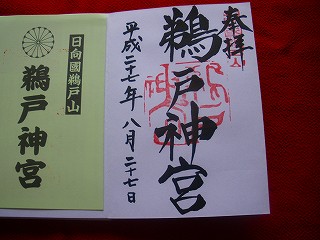 奉拝
鵜戸神宮
平成二十七年八月二十七日
日向國鵜戸山
鵜戸神宮